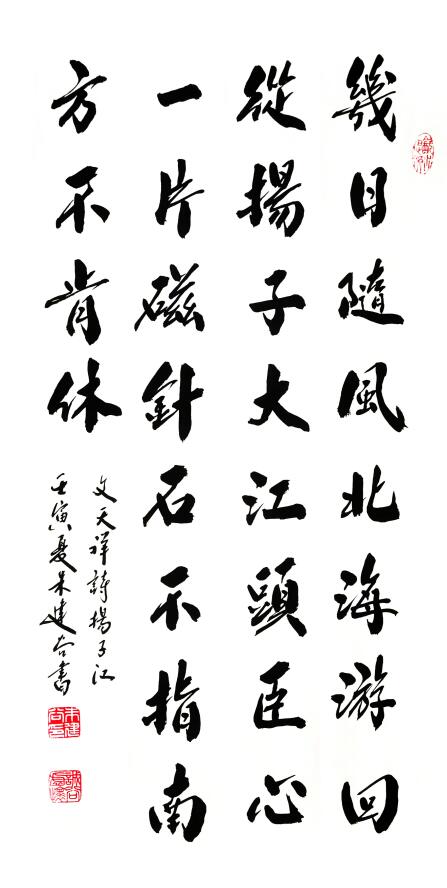 幾日隨風北海游回
從揚子大江頭臣心
一片磁針石不指南
方不肯休
文天祥詩揚子江
壬寅夏朱建書